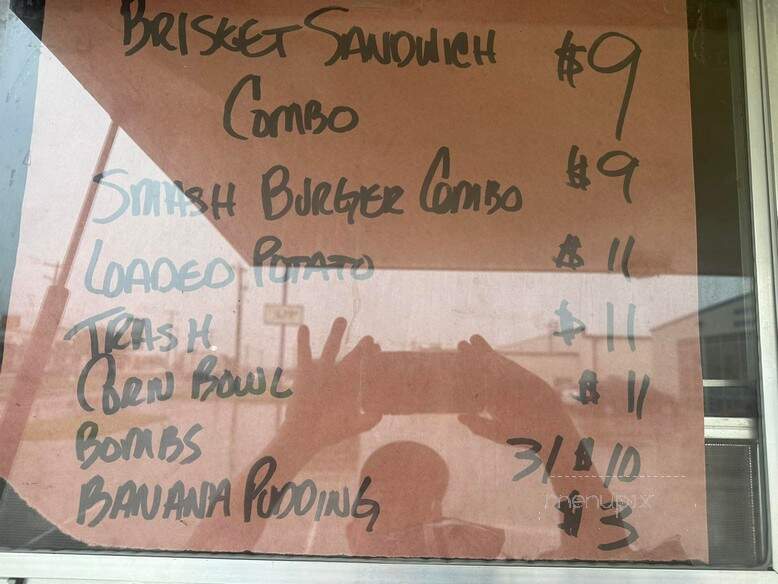 BRISKET SANDWICH $9
COMBO
SMASH BURGER COMBO $9
LOADED POTATO $11
TRASH $11
CORN BOWL $11
BOMBS 3/$10
BANANA PUDDING $3
menupix